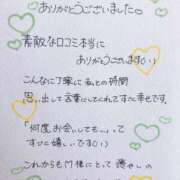 ありがとうございました。
素敵な口コミ本当に
ありがとうございます(^^)
こんなに丁寧に私との時間
思い出して言葉にしてくれてすっごく幸せです。
「何度、お会いしても…」って
すっごく嬉しいです(^^)
これからも 様にとって 癒やしの